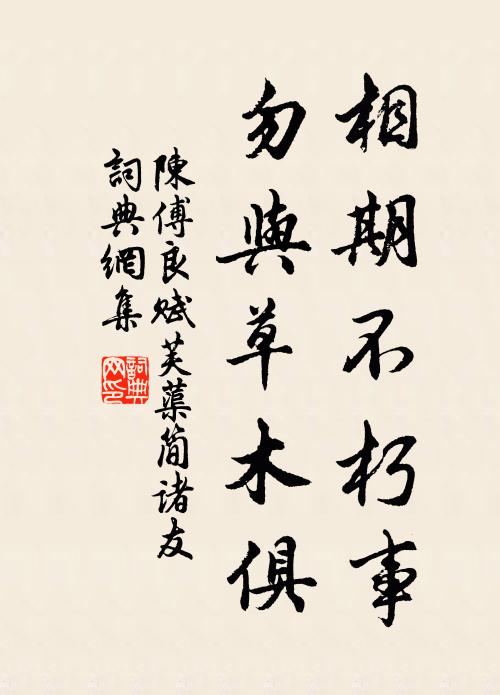 相期不朽事
勿與草木俱
陳傅良賦芙蕖簡諸友
詞典網集
詞典網印